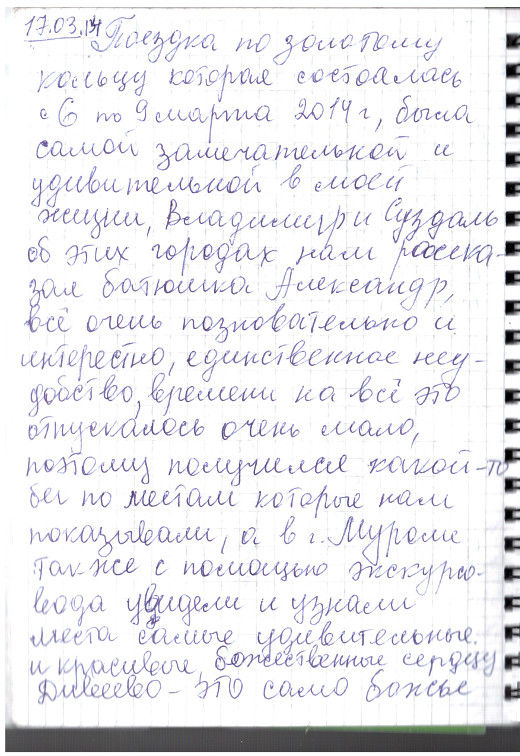 17.03.14 Поездка по золотому
кольцу которая состоалась
с 6 по 9 марта 2014 г, была
самой замечательной и
удивительной в моей
жизни, Владимир и Суздаль
об этих городах нам расска-
зал батюшка Александр,
всё очень позновательно и
интерестно, единственное неу-
добство, времени на всё это
отпускалось очень мало,
поэтому получился какой-то
бег по местам которые нам
показывали, а в г. Муроме
также с помощью экскурсо-
вода увидели и узнали
места самые удивительные
и красивые, божественные сердцу
Дивеево - это само божье